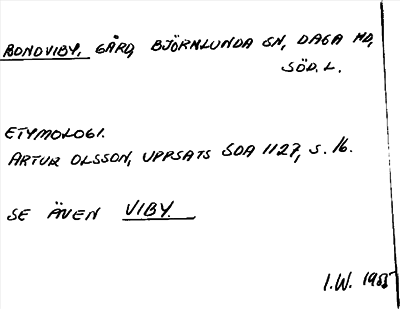 BONDVIBY, GÅRD, BJÖRNLUNDA SN, DAGA HD,
SÖD. L.
ETYMOLOGI.
ARTUR OLSSON, UPPSATS SOA 1127, S. 16.
SE ÄVEN VIBY.
I.W.